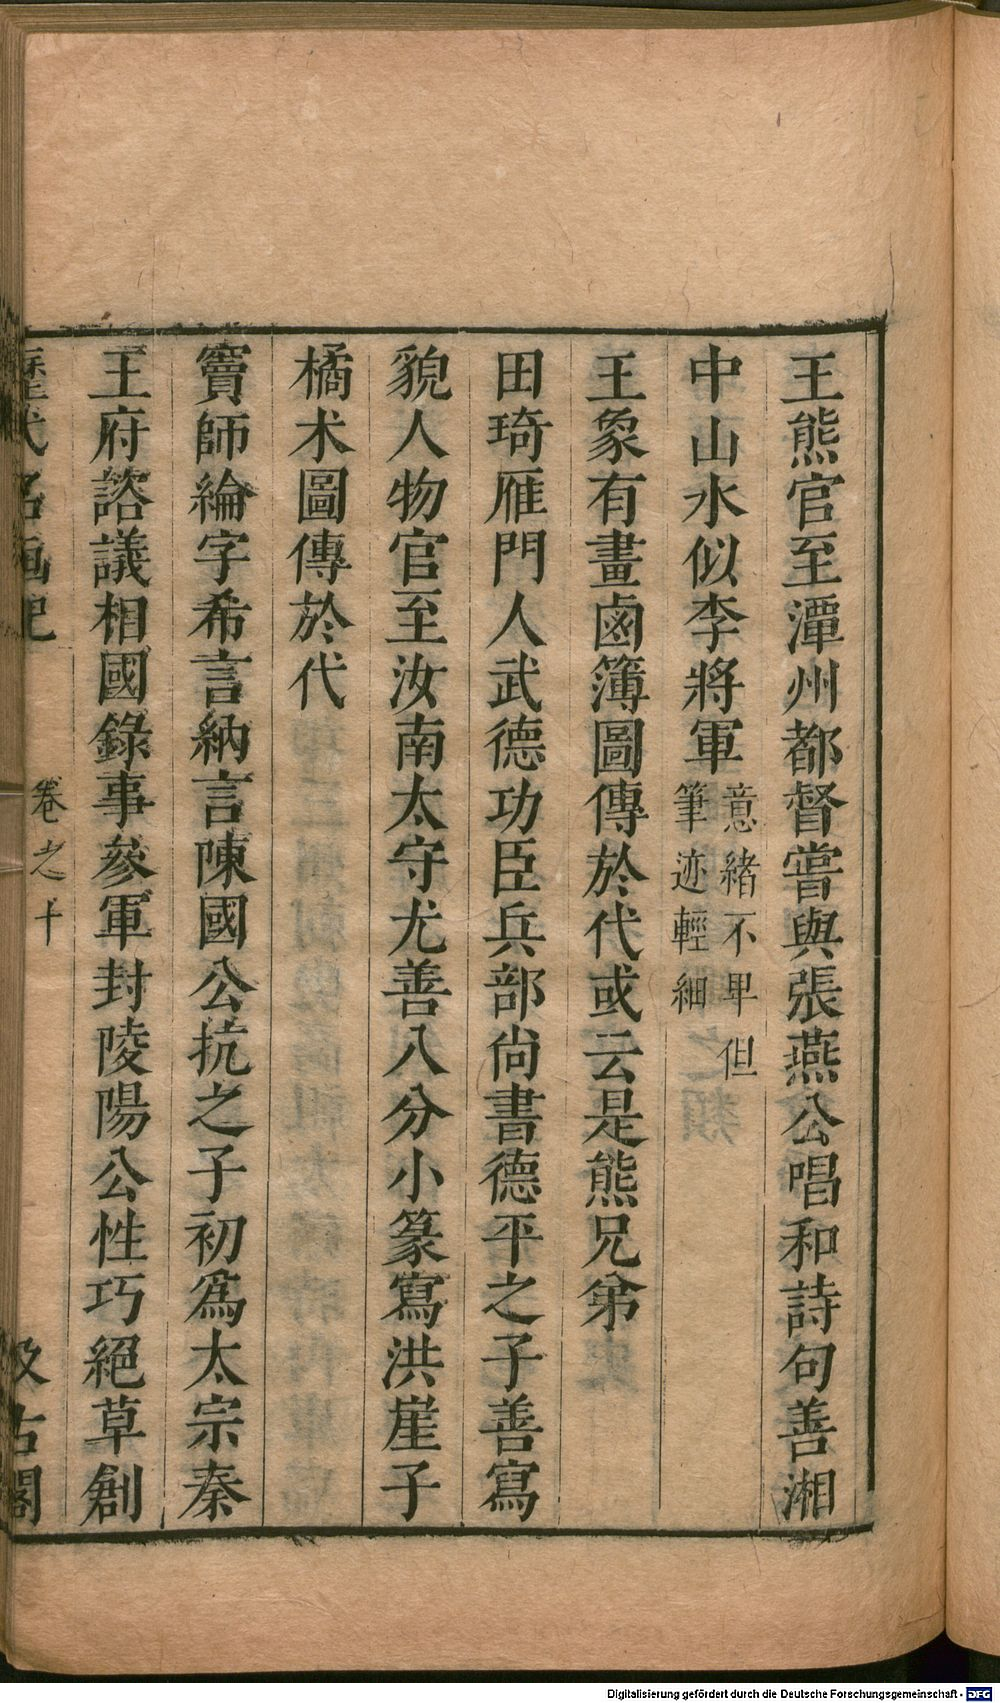 王熊官至潭州都督嘗與張燕公唱和詩句善湘
中山水似李將軍意緒不卑但
筆迹輕細
王象有畫鹵簿圖傳於代或云是熊兄弟
田琦雁門人武德功臣兵部尙書德平之子善寫
貌人物官至汝南太守尤善八分小篆寫洪崖子
橘木圖傳於代
竇師綸字希言納言陳國公抗之子初爲太宗秦
王府諮議相國錄事參軍封陵陽公性巧絕草創
歷代名画記
卷之十
汲古閣
Digitalisierung gefördert durch die Deutsche Forschungsgemeinschaft - DFG